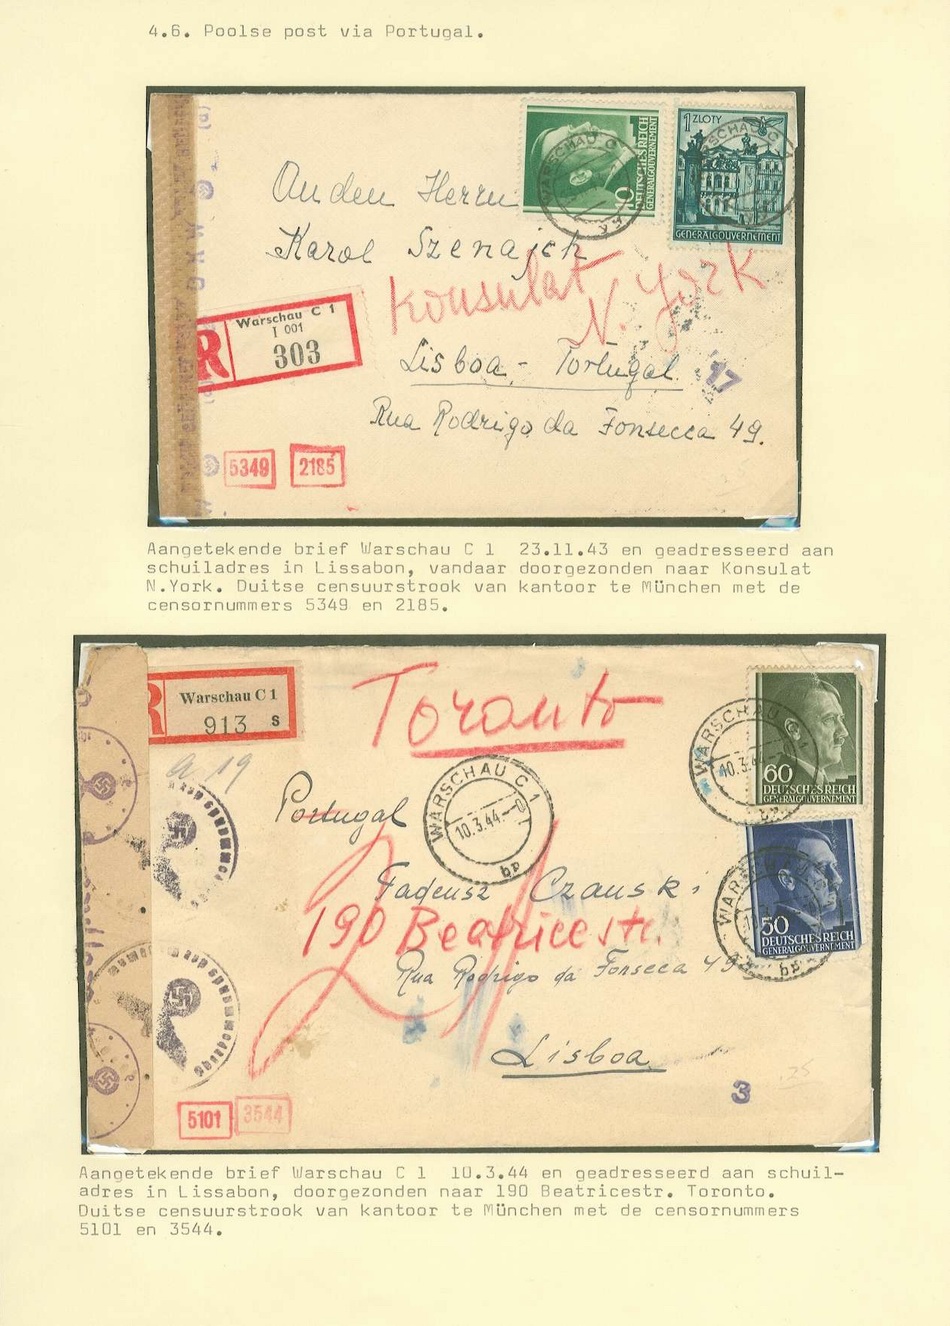 4.6. Poolse post via Portugal.
An den Herrn
Karol Szenajch
Konsulat
N. York
Lisboa - Portugal
Rua Rodrigo da Fonseca 49.
R
Warschau C 1
I 001
303
17
5349
2185
10
DEUTSCHES REICH
GENERALGOUVERNEMENT
WARSCHAU C
1 ZLOTY
GENERALGOUVERNEMENT
Aangetekende brief Warschau C 1 23.11.43 en geadresseerd aan
schuiladres in Lissabon, vandaar doorgezonden naar Konsulat
N.York. Duitse censuurstrook van kantoor te München met de
censornummers 5349 en 2185.
R
Warschau C 1
913 s
a 19
Toronto
Portugal
WARSCHAU C 1
10.3.44
bp
Tadeusz Czauski
190 Beatricestr.
Rua Rodrigo da Fonseca 49
Lisboa
3
5101
3544
WARSCHAU C 1
10.3.44
60
DEUTSCHES REICH
GENERALGOUVERNEMENT
50
DEUTSCHES REICH
GENERALGOUVERNEMENT
Aangetekende brief Warschau C 1 10.3.44 en geadresseerd aan schuil-
adres in Lissabon, doorgezonden naar 190 Beatricestr. Toronto.
Duitse censuurstrook van kantoor te München met de censornummers
5101 en 3544.